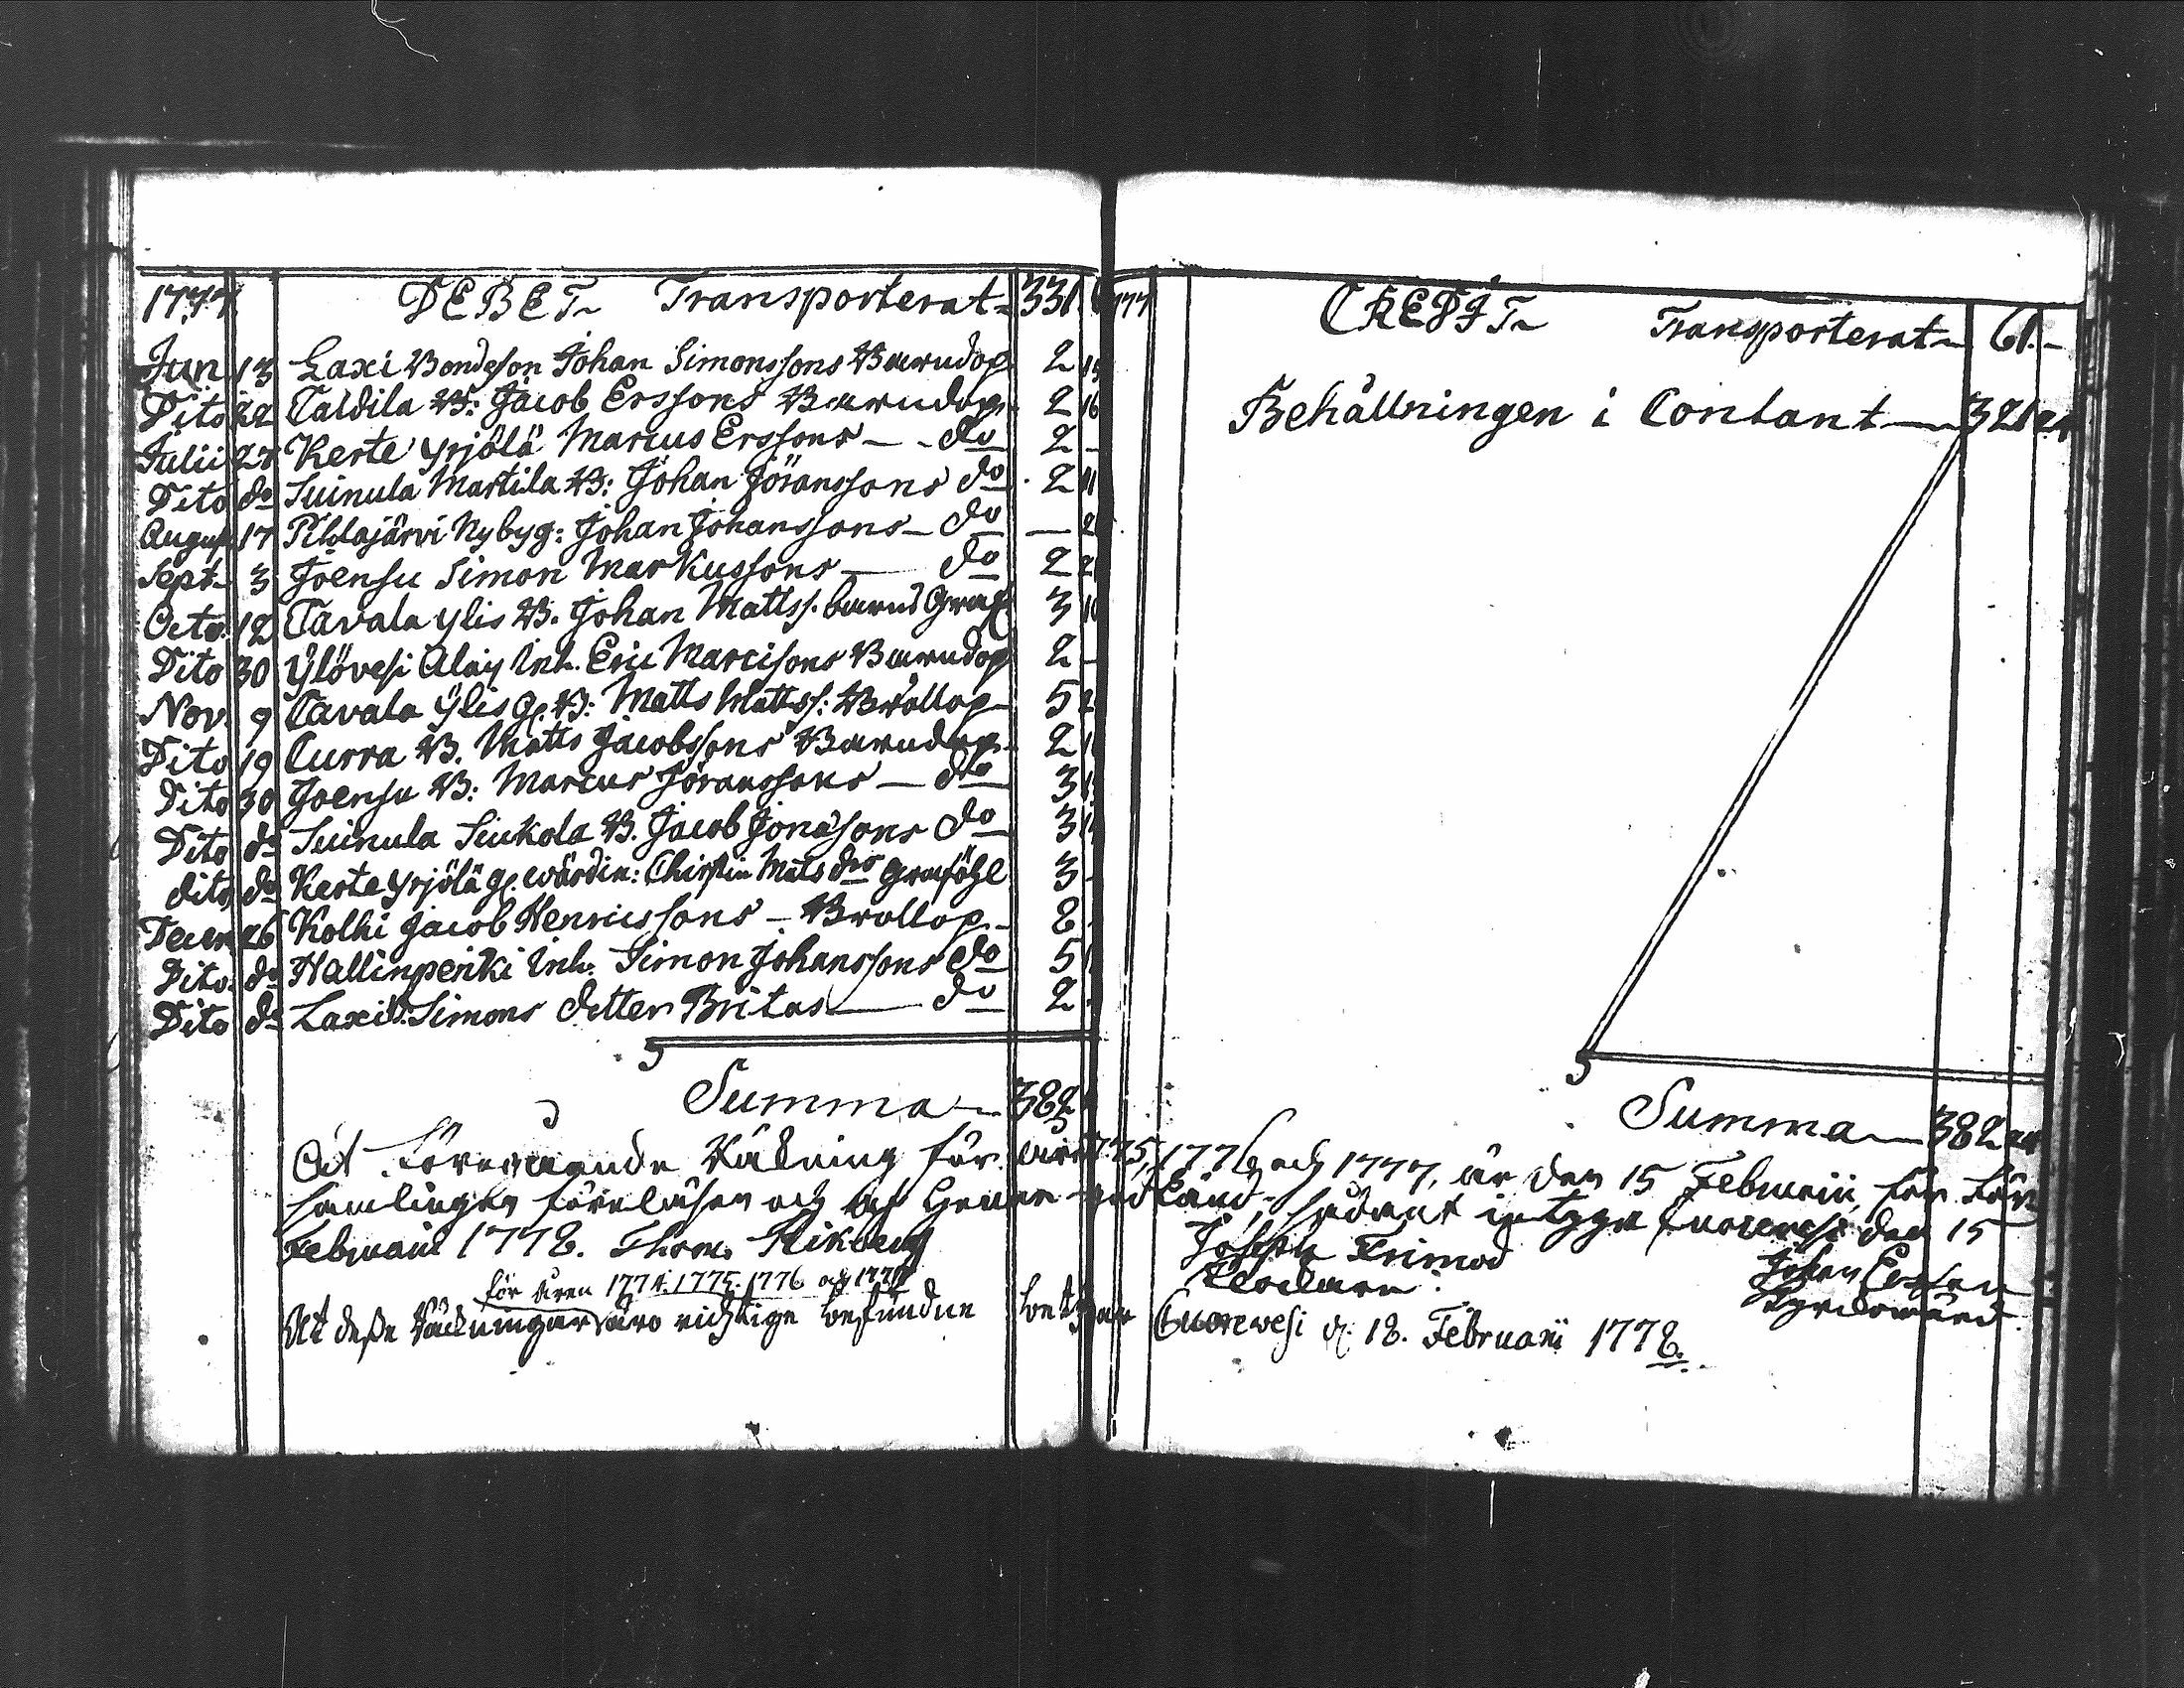 1777 DEBET Transporterat 331
Jun 13 Laxi Bondeson Johan Simonssons Barndop 2
Dito 22 Taldila B: Jacob Erssons Barndop 2 16
Julii 27 Kerte Yrjölä Marcus Erssons do 2 -
Dito do Suinula Martila B: Johan Jöranssons do 2 11
August 17 Pihlajärvi Nybyg: Johan Johanssons do - 2
Sept. 3 Joensu Simon Markussons do 2
Octo. 12 Tavala Ylis B. Johan Mattss. barns Graf 3
Dito 30 Ylövesi Alaij Inh. Eric Marcisons Barndop 2 -
Nov. 9 Tavala Ylis g. B: Matts Mattss: Bröllop 5
Dito 19 Curra B. Matts Jacobssons Barndop 2
Dito 30 Joensu B: Marcus Jöranssons do 3
Dito do Suinula Siukola B. Jacob Jonasons do 3
dito do Kerte Yrjölä g. wärdin: Chirstin Mats dr Graföhl 3
Decem 26 Kolhi Jacob Henricssons Bröllop 8
Dito do Hallinpenki Inh. Simon Johanssons do 5
Dito do Laxi Simons dotter Britas do 2
Summa 382
1777 CREDIT Transporterat 61 -
Behållningen i Contant 321 24
Summa 382 24
At föregående Räkning för åren 1775, 1776 och 1777, är den 15 Februarii för För
samlingen föreläsen och af Henne godkänd, sådant intygar Cuorevesi den 15
Februarii 1778. Thom. Joseph Frimod Johan Ersson
Klockare. Kyrckowärd
för åren 1774. 1775. 1776 och 1777
At deße Räckningar äro richtige befundne betygar Cuorewesi d. 18. Februarii 1778.